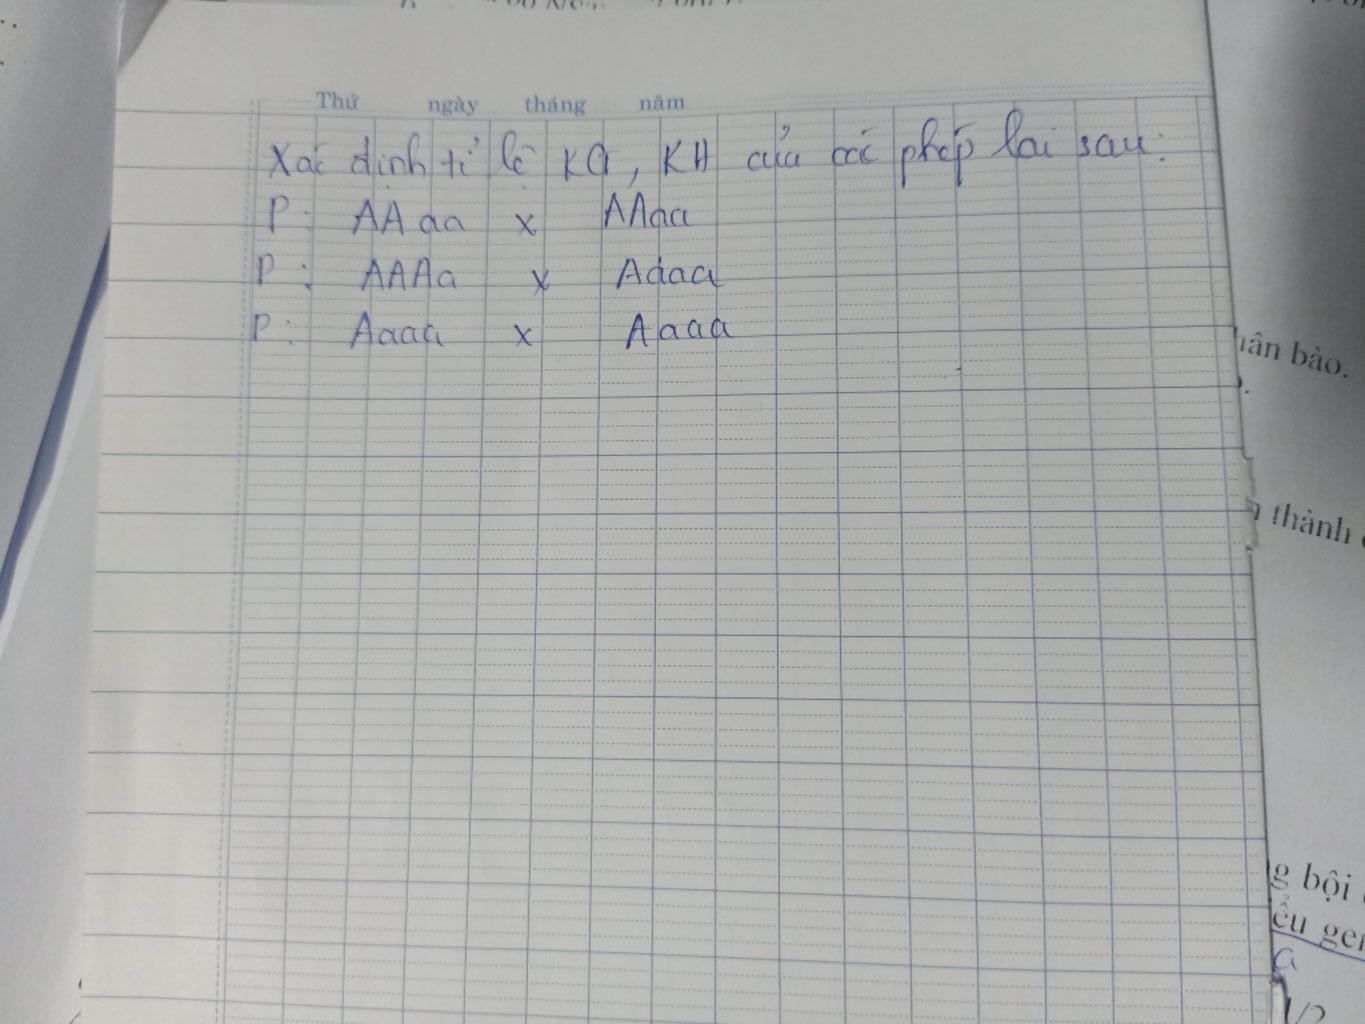 Thứ ngày tháng năm
Xác định tỉ lệ KG, KH của các phép lai sau:
P: AAaa x AAaa
P: AAAa x Aaaa
P: Aaaa x Aaaa
bào.
thành
bội
gen
1/2